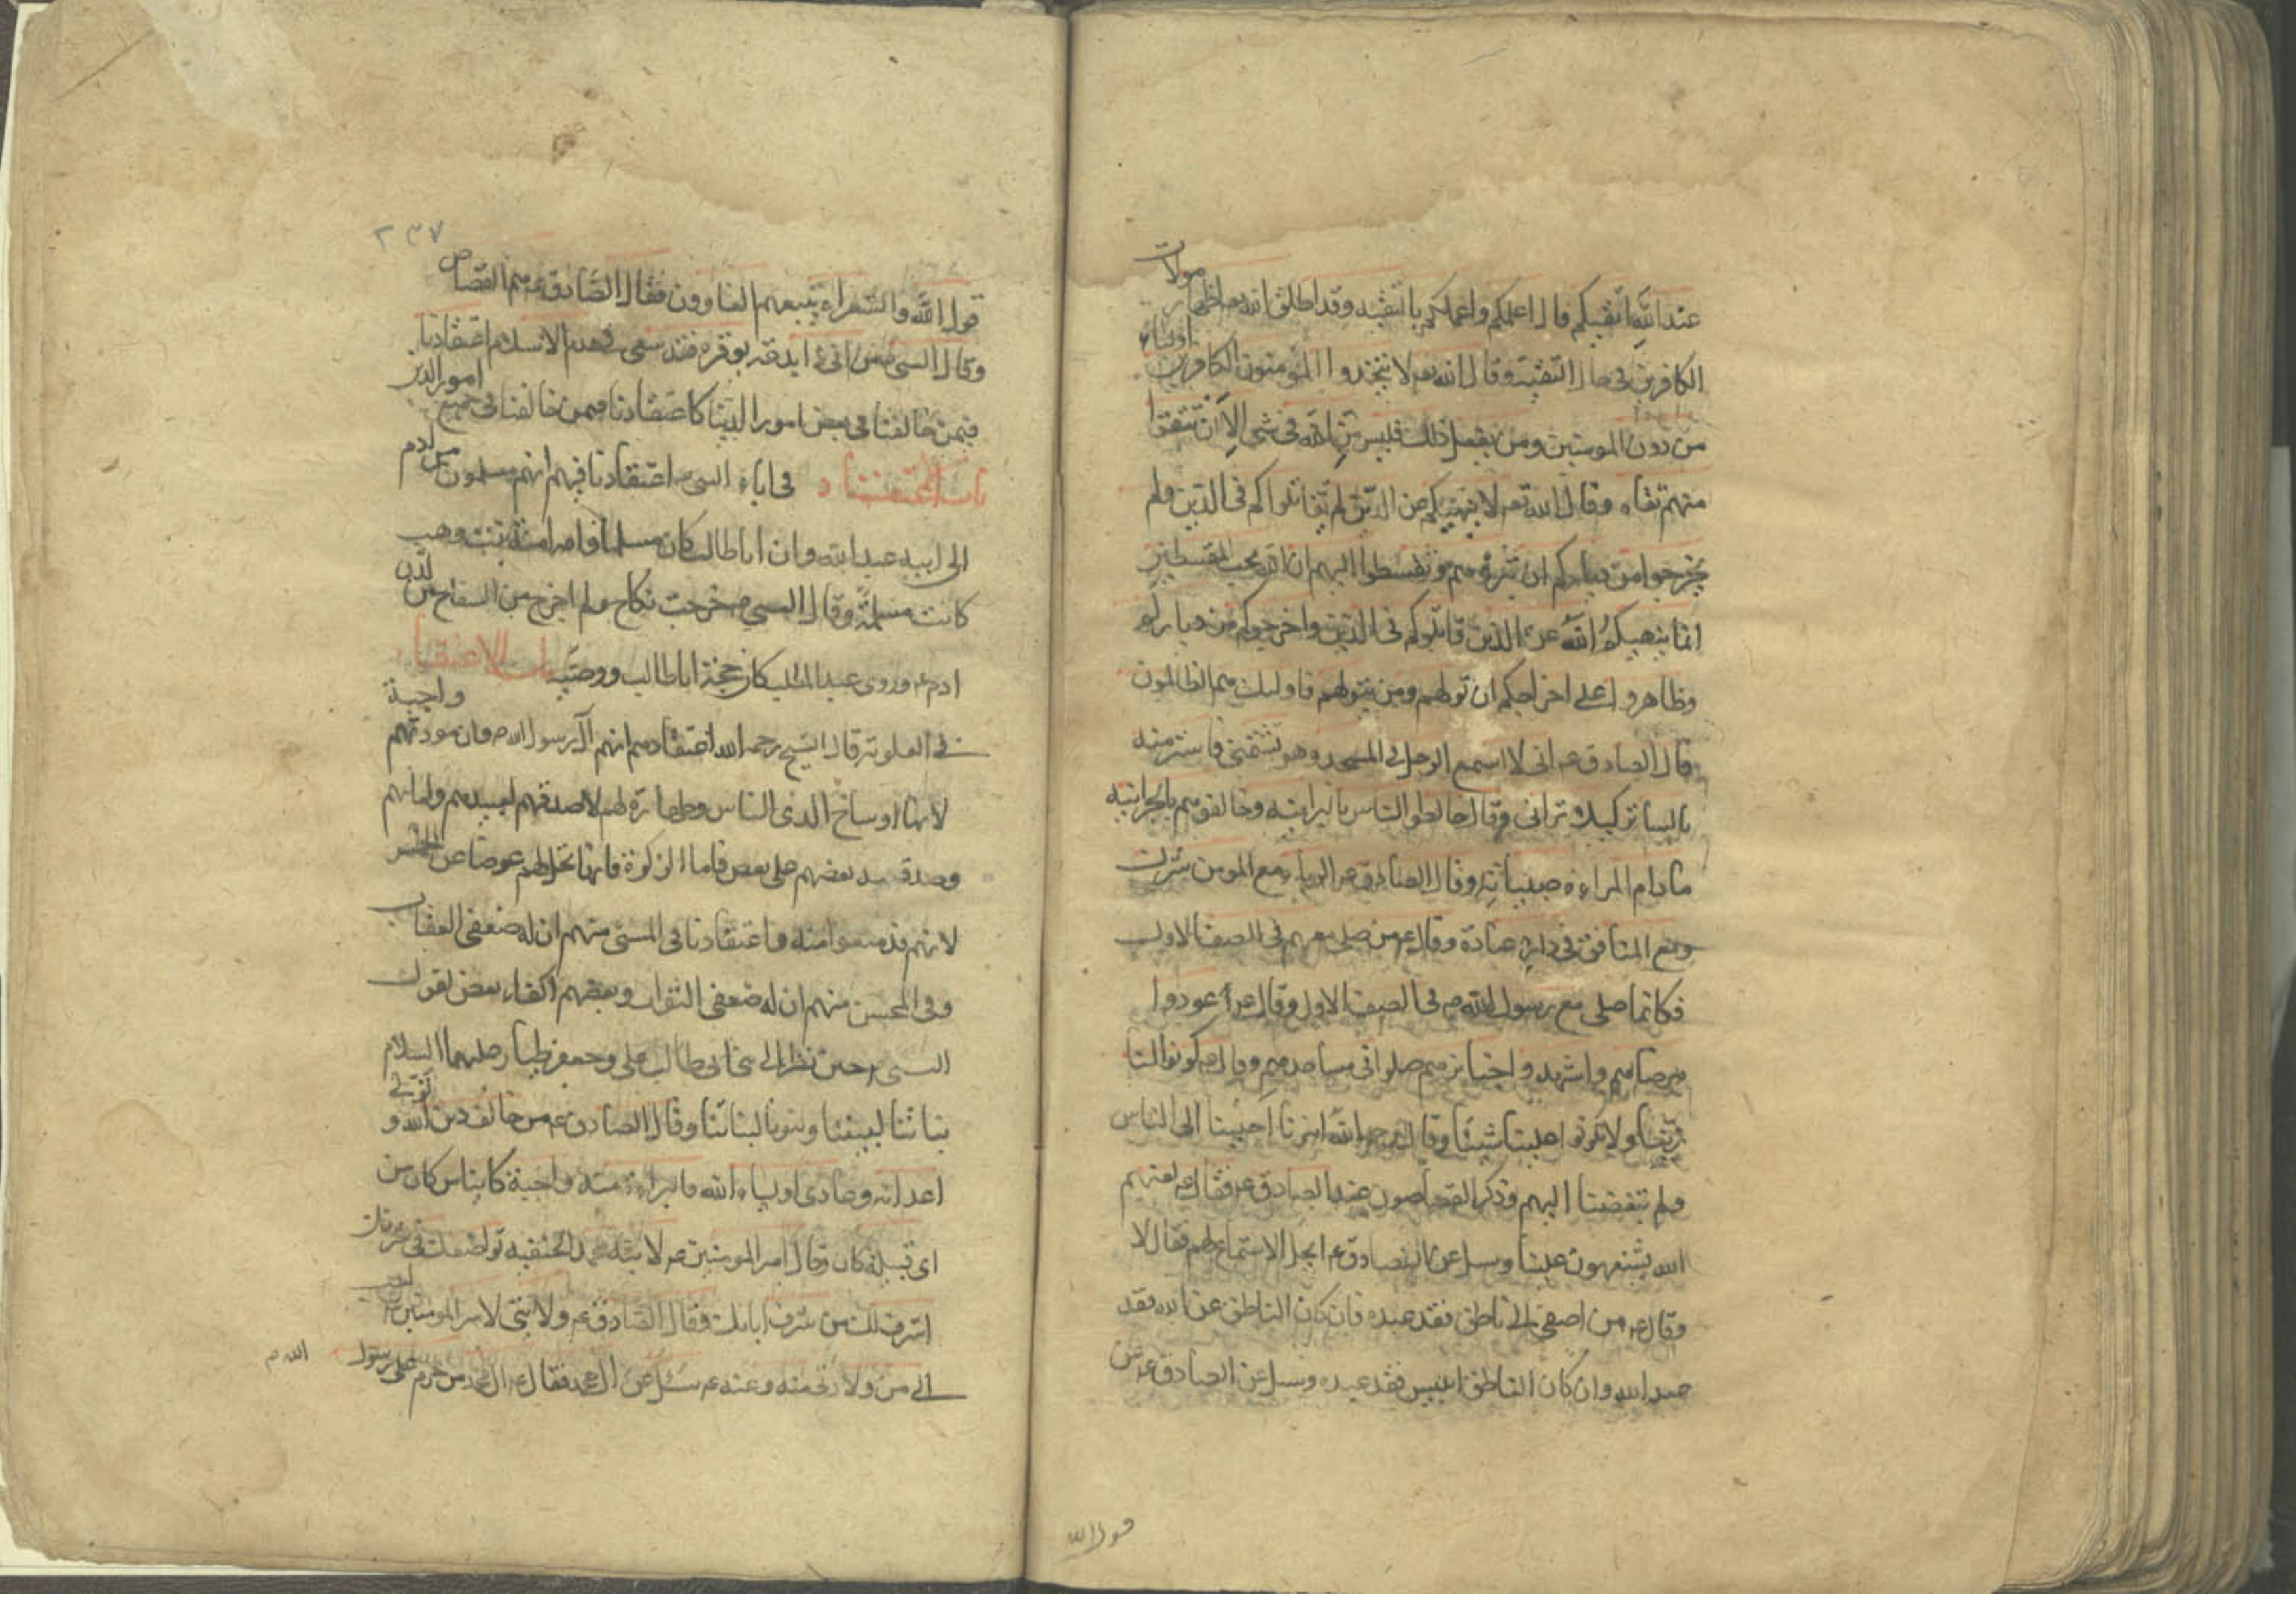 عند الله اتقيكم قال اعلمكم واعملكم بالتقيه وقد اطلق الله تعه اظهار موالات
الكافرين في حال التقية وقال الله تعه لا يتخذوا المؤمنون الكافرين اولياء
من دون المومنين ومن يفعل ذلك فليس من الله في شي الا ان تتقوا
منهم تقاه وقال الله تعه لا ينهيكم عن الذين لم يقاتلوا كم في الدين ولم
يخرجوا من دياركم ان تبروهم وتقسطوا اليهم ان الله يحب المقسطين
انما ينهيكم الله عن الذين قاتلوكم في الدين واخرجوكم من دياركم
وظاهروا على اخراجكم ان تولهم ومن يتولهم فاوليك هم الظالمون
قال الصادق عه انى لا اسمع الرجل في المسجد وهو يشتمني فاستر منه
بالساتر كيلا تراني وقال خالطوا الناس بالبرانيه وخالفوهم بالجوانيه
مادام الامراءة صبيانيه وقال الصادق عه الرياء مع المومن شرك
ومع المنافق في داره عبادة وقال عه من صلى معهم في الصف الاول
فكانما صلى مع رسول الله ص في الصف الاول وقال عه عودوا
مرضاهم واشهدوا جنايزهم صلوا في مساجدهم وقال عه كونوا لنا
زينا ولا تكونوا علينا شينا وقال عه رحم الله امرنا احببنا الى الناس
ولم يبغضنا اليهم وذكر القصاصون عند الصادق عه فقال عه لعنهم
الله يشنعون علينا وسل عن الصادق عه ايحل الاستماع لهم فقال لا
وقال عه من اصغى الى ناطق فقد عبده فان كان الناطق عن الله فقد
عبد الله وان كان الناطق ابليس فقد عبده وسل عن الصادق عه عن
قول الله
٢٣٧
قول الله والشعراء يتبعهم الغاوون فقال الصادق عه هم القصاص
وقال النبي ص من اتى ذا بدعة يوقره فقد سعى في هدم الاسلام اعتقادنا
فيمن خالفنا في بعض امور الدينا كاعتقادنا فيمن خالفنا في جميع امور الدين
باب الاعتقاد في اباء النبي ص اعتقادنا فيهم انهم مسلمون من ادم
الى ابيه عبد الله وان اباطالب كان مسلما وامه امنة بنت وهب
كانت مسلمة وقال النبي ص خرجت نكاح ولم اخرج من السفاح من لدن
ادم عه وروى عبد المطلب كان حجة اباطالب ووصيه باب الاعتقاد
في العلوية قال الشيخ رحمه الله اعتقادهم انهم آل رسول الله ص وان مودتهم واجبة
لانها اوساخ الذى الناس وطهارة لهم الا صدقهم لعبيدهم وامائهم
وصدقه بعضهم على بعض فاما الزكوة فانها تحل لهم عوضا عن الخمس
لانهم قد منعوا منه واعتقادنا في المسئ منهم ان له ضعفى العقاب
وفي المحسن منهم ان له ضعفى الثواب وبعضهم اكفاء بعض لقول
النبي ص حين نظر الى بنى ابى طالب على وجعفر طيار عليهما السلام
بناتنا لبنينا وبنونا لبناتنا وقال الصادق عه من خالف دين الله و تولى
اعدائه وعادى اولياء الله فالبراءة منه واجبة كاينا من كان من
اى قبيلة كان وقال امير المومنين عه لابنه محمد الحنفيه تواضعك في شرفك
اشرف لك من شرف ابائك وقال الصادق عه ولايتى لامير المومنين عه احب
الى من ولادتى منه وعنه عه سئل عن ال محمد فقال عه ال محمد من حرم على رسول
الله ص